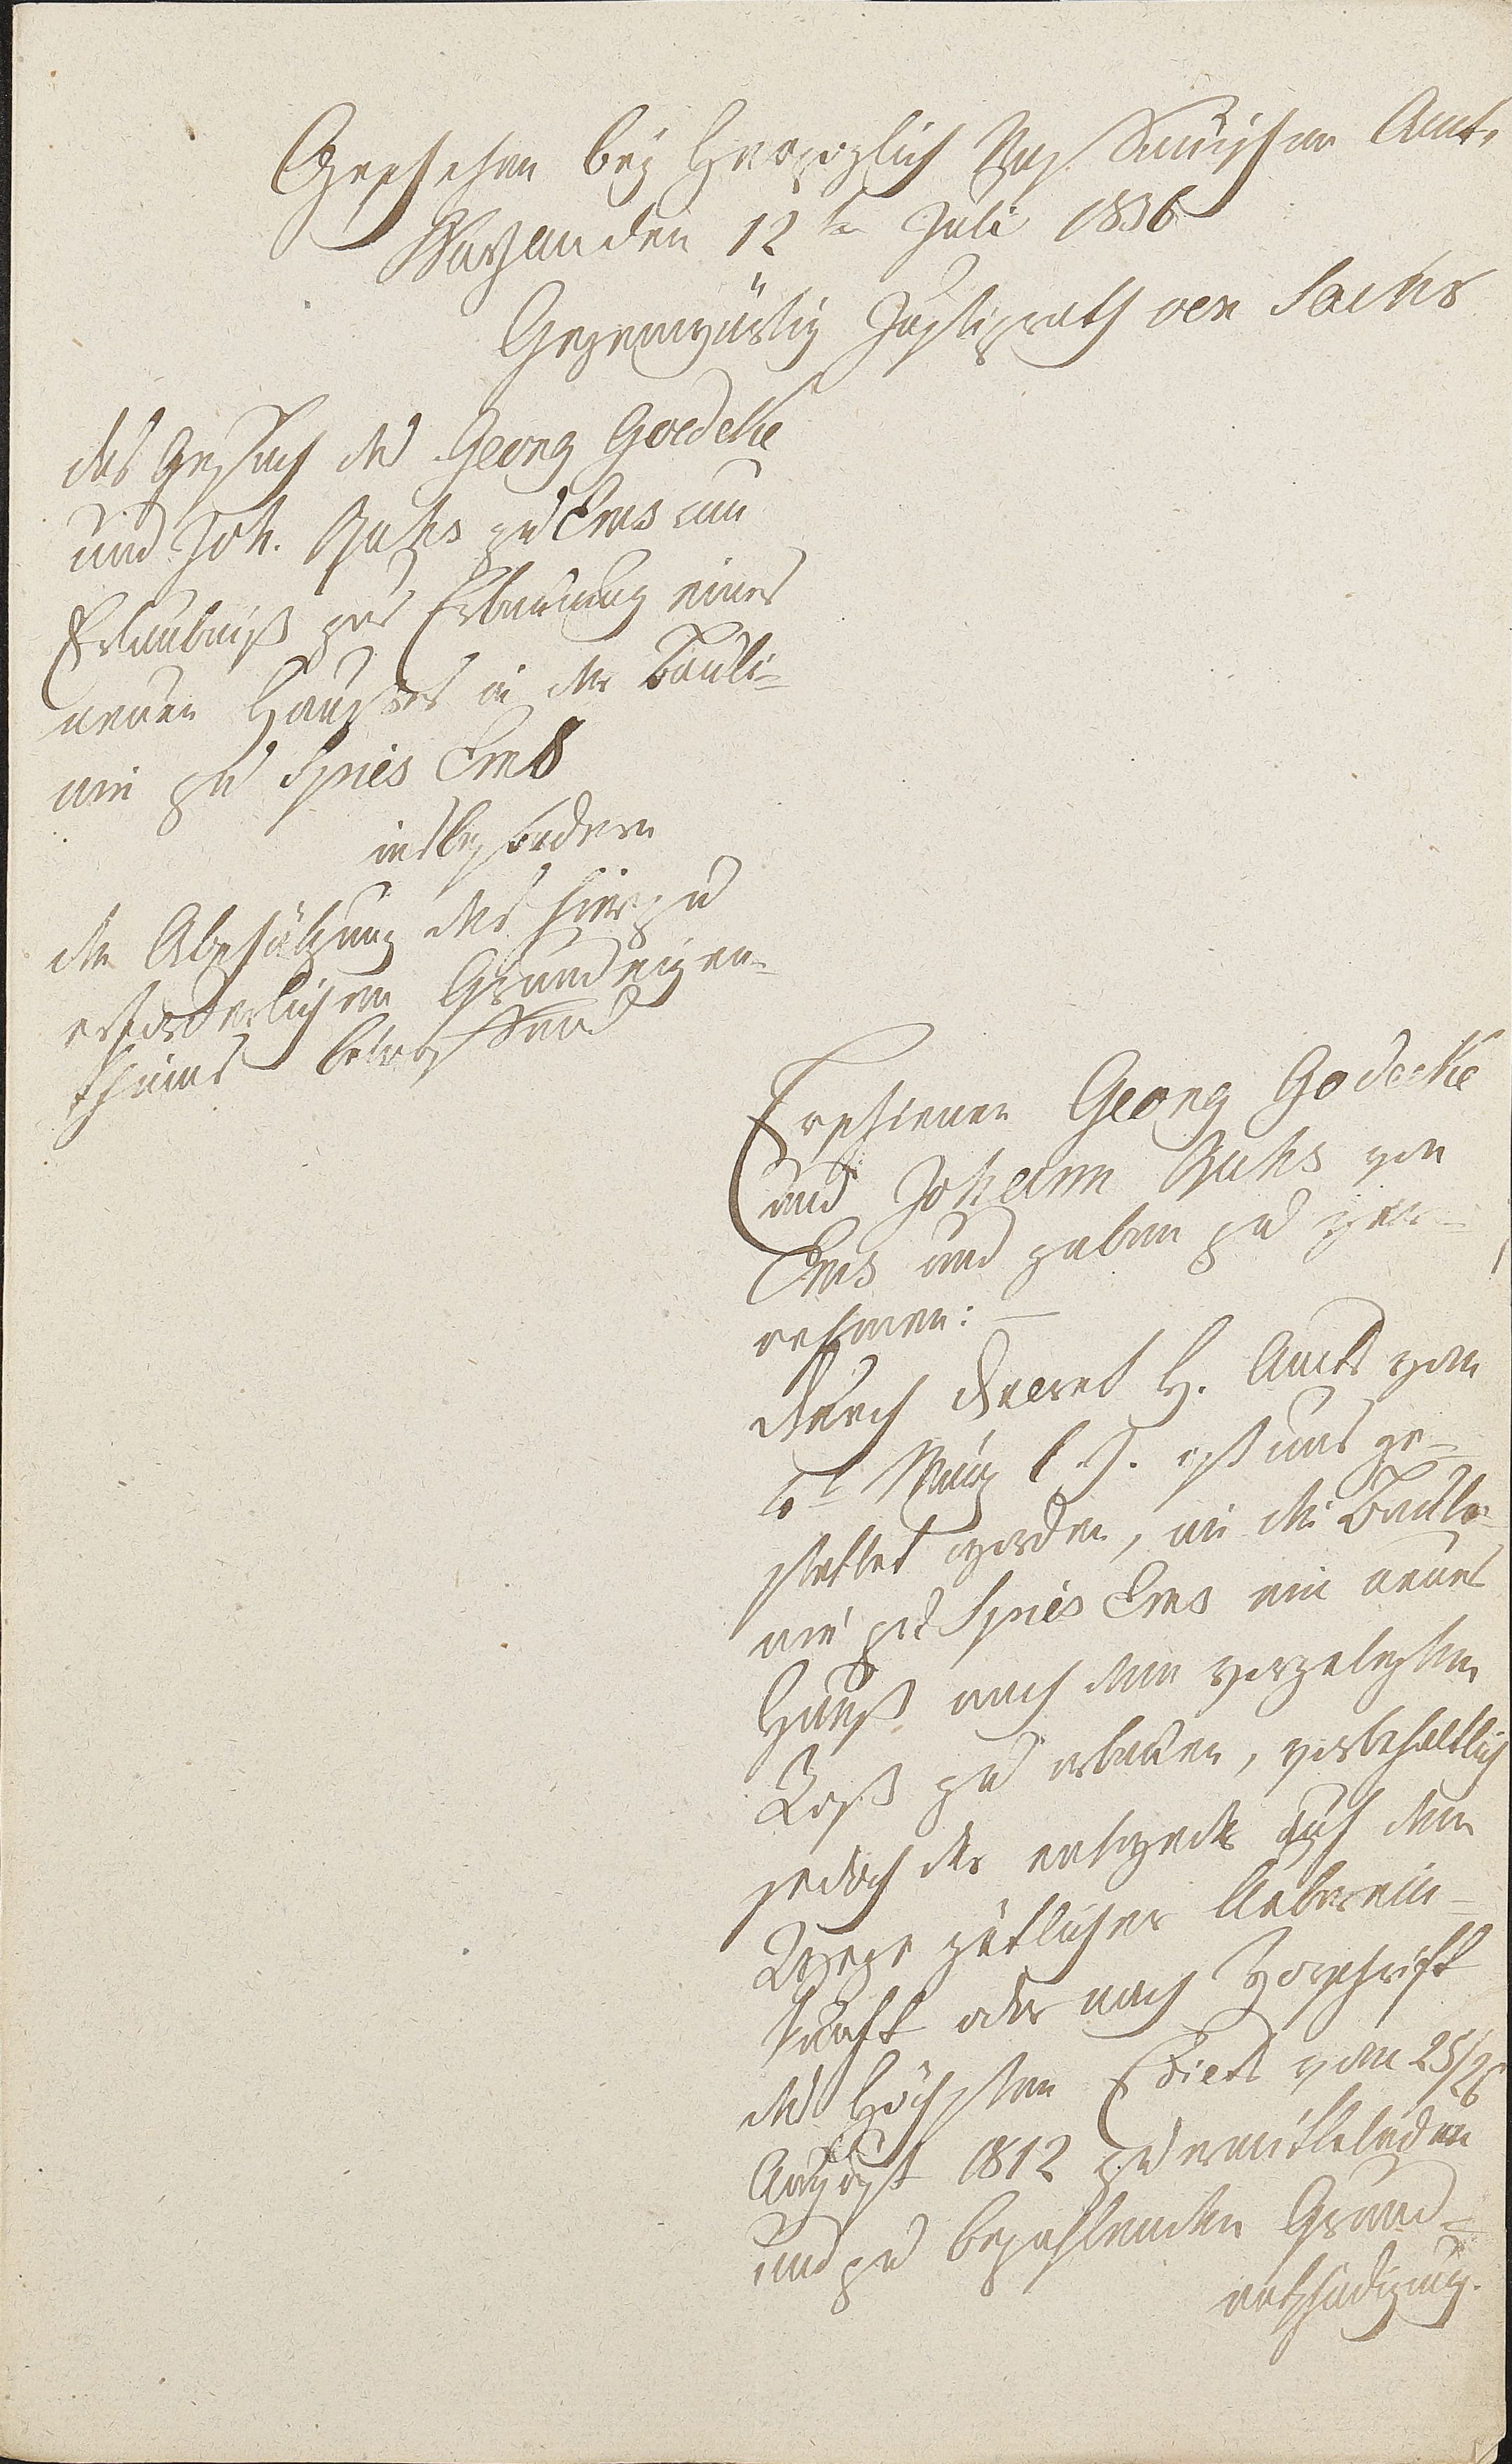 Geschehen bey Herzoglich Nassauischem Amte
Nassau den 12ten Juli 1836
Gegenwärtig Justizrath von Sachs
das Gesuch des Georg Goedeke
und Joh. zu Ems um
Erlaubniß zur Erbauung eines
neuen Hauses in der Bauli-
nie zu Spies Ems
insbesondere
die Abschätzung des hierzu
erforderlichen Grundeigen-
thums betreffend
Erschienen Georg Godecke
und Johann von
Ems und gaben zu ver-
nehmen: —
Durch Decret H. Amts vom
März l. J. ist uns ge-
stattet worden, in die Bauli-
nie zu Spies Ems ein neues
Hauß nach dem vorgelegten
Riß zu erbauen, vorbehaltlich
jedoch der entweder auf dem
Wege gütlicher Ueberein-
kunft oder nach Vorschrift
des Höchsten Edicts vom 25/26
August 1812 zu ermittelnden
und zu bezahlenden Grund-
entschädigung.